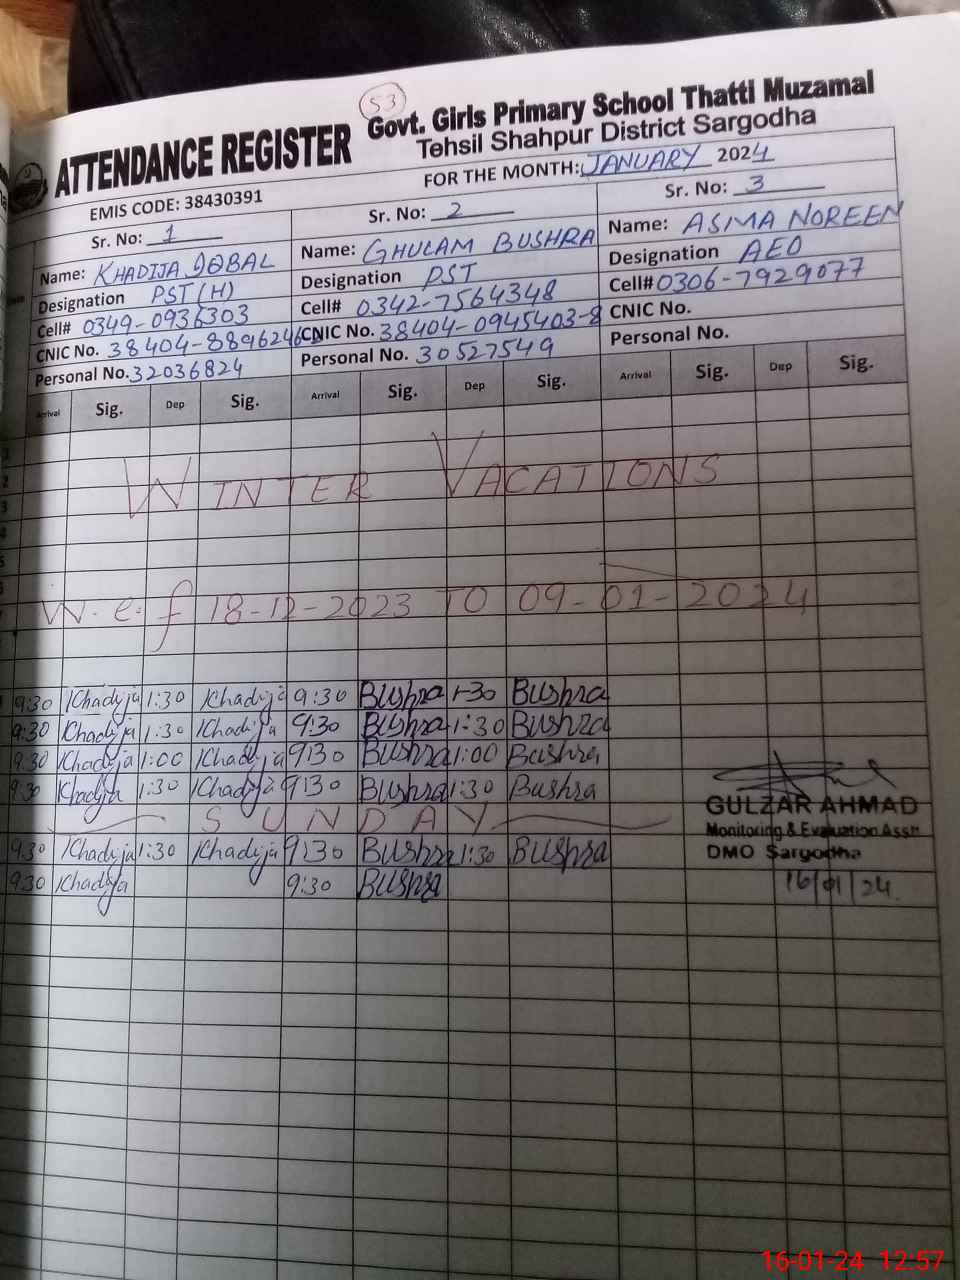 53
ATTENDANCE REGISTER Govt. Girls Primary School Thatti Muzamal
Tehsil Shahpur District Sargodha
EMIS CODE: 38430391 FOR THE MONTH: JANUARY 2024
Sr. No: 1 Sr. No: 2 Sr. No: 3
Name: KHADIJA IQBAL Name: GHULAM BUSHRA Name: ASMA NOREEN
Designation PST (H) Designation PST Designation AEO
Cell# 0349-0936303 Cell# 0342-7564348 Cell# 0306-7929077
CNIC No. CNIC No. 38404-0945403-8 CNIC No.
Personal No. 32036824 Personal No. 30527549 Personal No.
Arrival Sig. Dep Sig. Arrival Sig. Dep Sig. Arrival Sig. Dep Sig.
1
2
3
4
5
WINTER VACATIONS
W.e.f 18-12-2023 TO 09-01-2024
9:30 Khadija 1:30 Khadija 9:30 Bushra 1-30 Bushra
9:30 Khadija 1:30 Khadija 9:30 Bushra 1:30 Bushra
9:30 Khadija 1:00 Khadija 9:30 Bushra 1:00 Bushra
9:30 Khadija 1:30 Khadija 9:30 Bushra 1:30 Bushra
SUNDAY
9:30 Khadija 1:30 Khadija 9:30 Bushra 1:30 Bushra
9:30 Khadija 9:30 Bushra
GULZAR AHMAD
Monitoring & Evaluation Asstt.
DMO Sargodha
16/01/24.
16-01-24 12:57